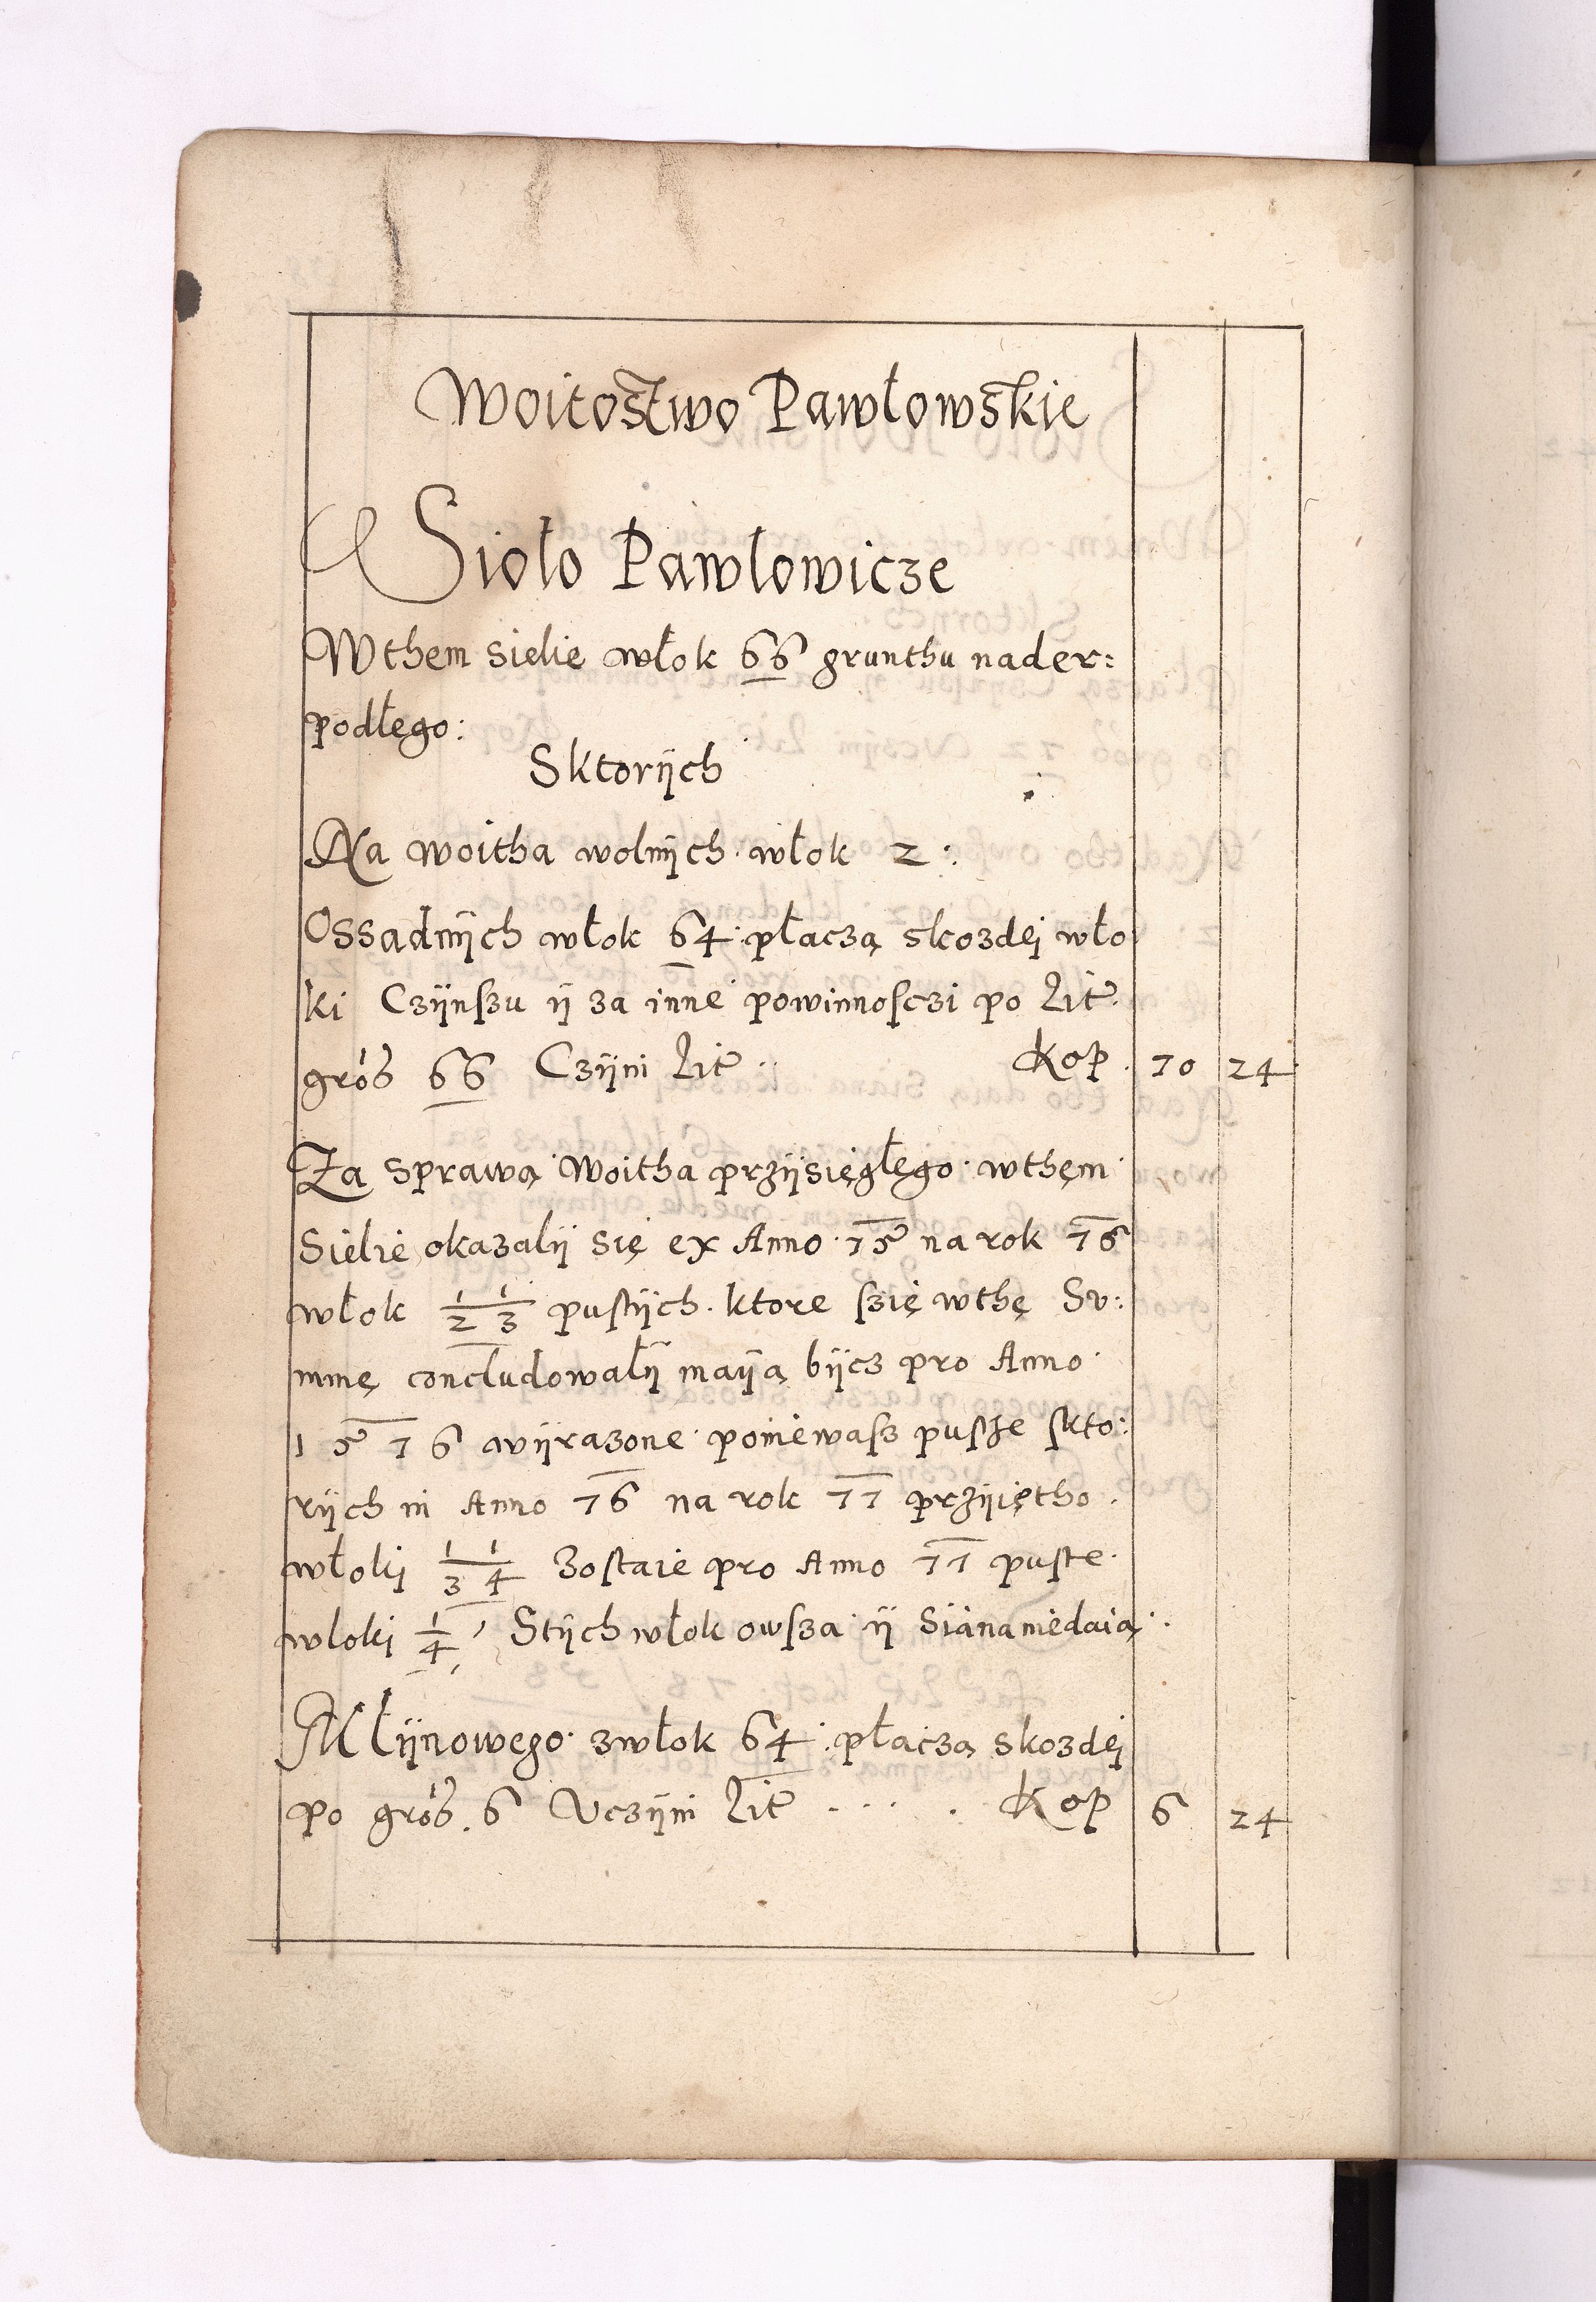 Woitostwo Pawłowskie
Sioło Pawlowicze
Wthem sielie włok 66 grunthu nader:
podłego:
Sktorÿch
Na woitha wolnÿch włok 2:
Ossadnÿch włok 64: płaczą skozdej wło
ki Czÿnszu ÿ za inne powinnosczi po Lit
gros 66 Czÿni Lit Kop 70 24
Za sprawą Woitha przÿsięgłego wthem
Sielie okazalÿ się ex Anno 75 na rok 76
włok 1/2 1/3 pustÿch ktore szię wthę Su:
mmę concludowałÿ maÿą bÿcz pro Anno
1576 wÿrazone poniewasz puste skto:
rÿch in Anno 76 na rok 77 przÿiętho
włoki 1/3 1/4 Zostaie pro Anno 77 puste
wloki 1/4 Stÿch włok owsza ÿ Siana niedaią
Młÿnowego zwłok 64: płaczą skozdej
po gros 6 Uczÿni Lit Kop 6 24